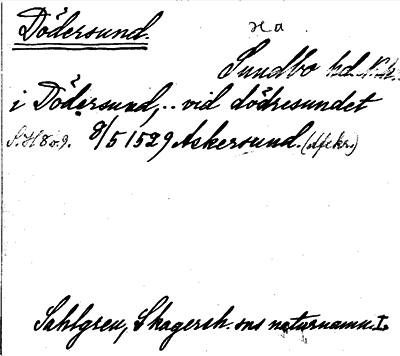 Dödersund. Ha
Sundbo hd. N.k.
i Dödersund,.. vid dödresundet
8/5 1529 Askersund. (Afskr.)
Sahlgren, Skagersh. sns naturnamn. I.